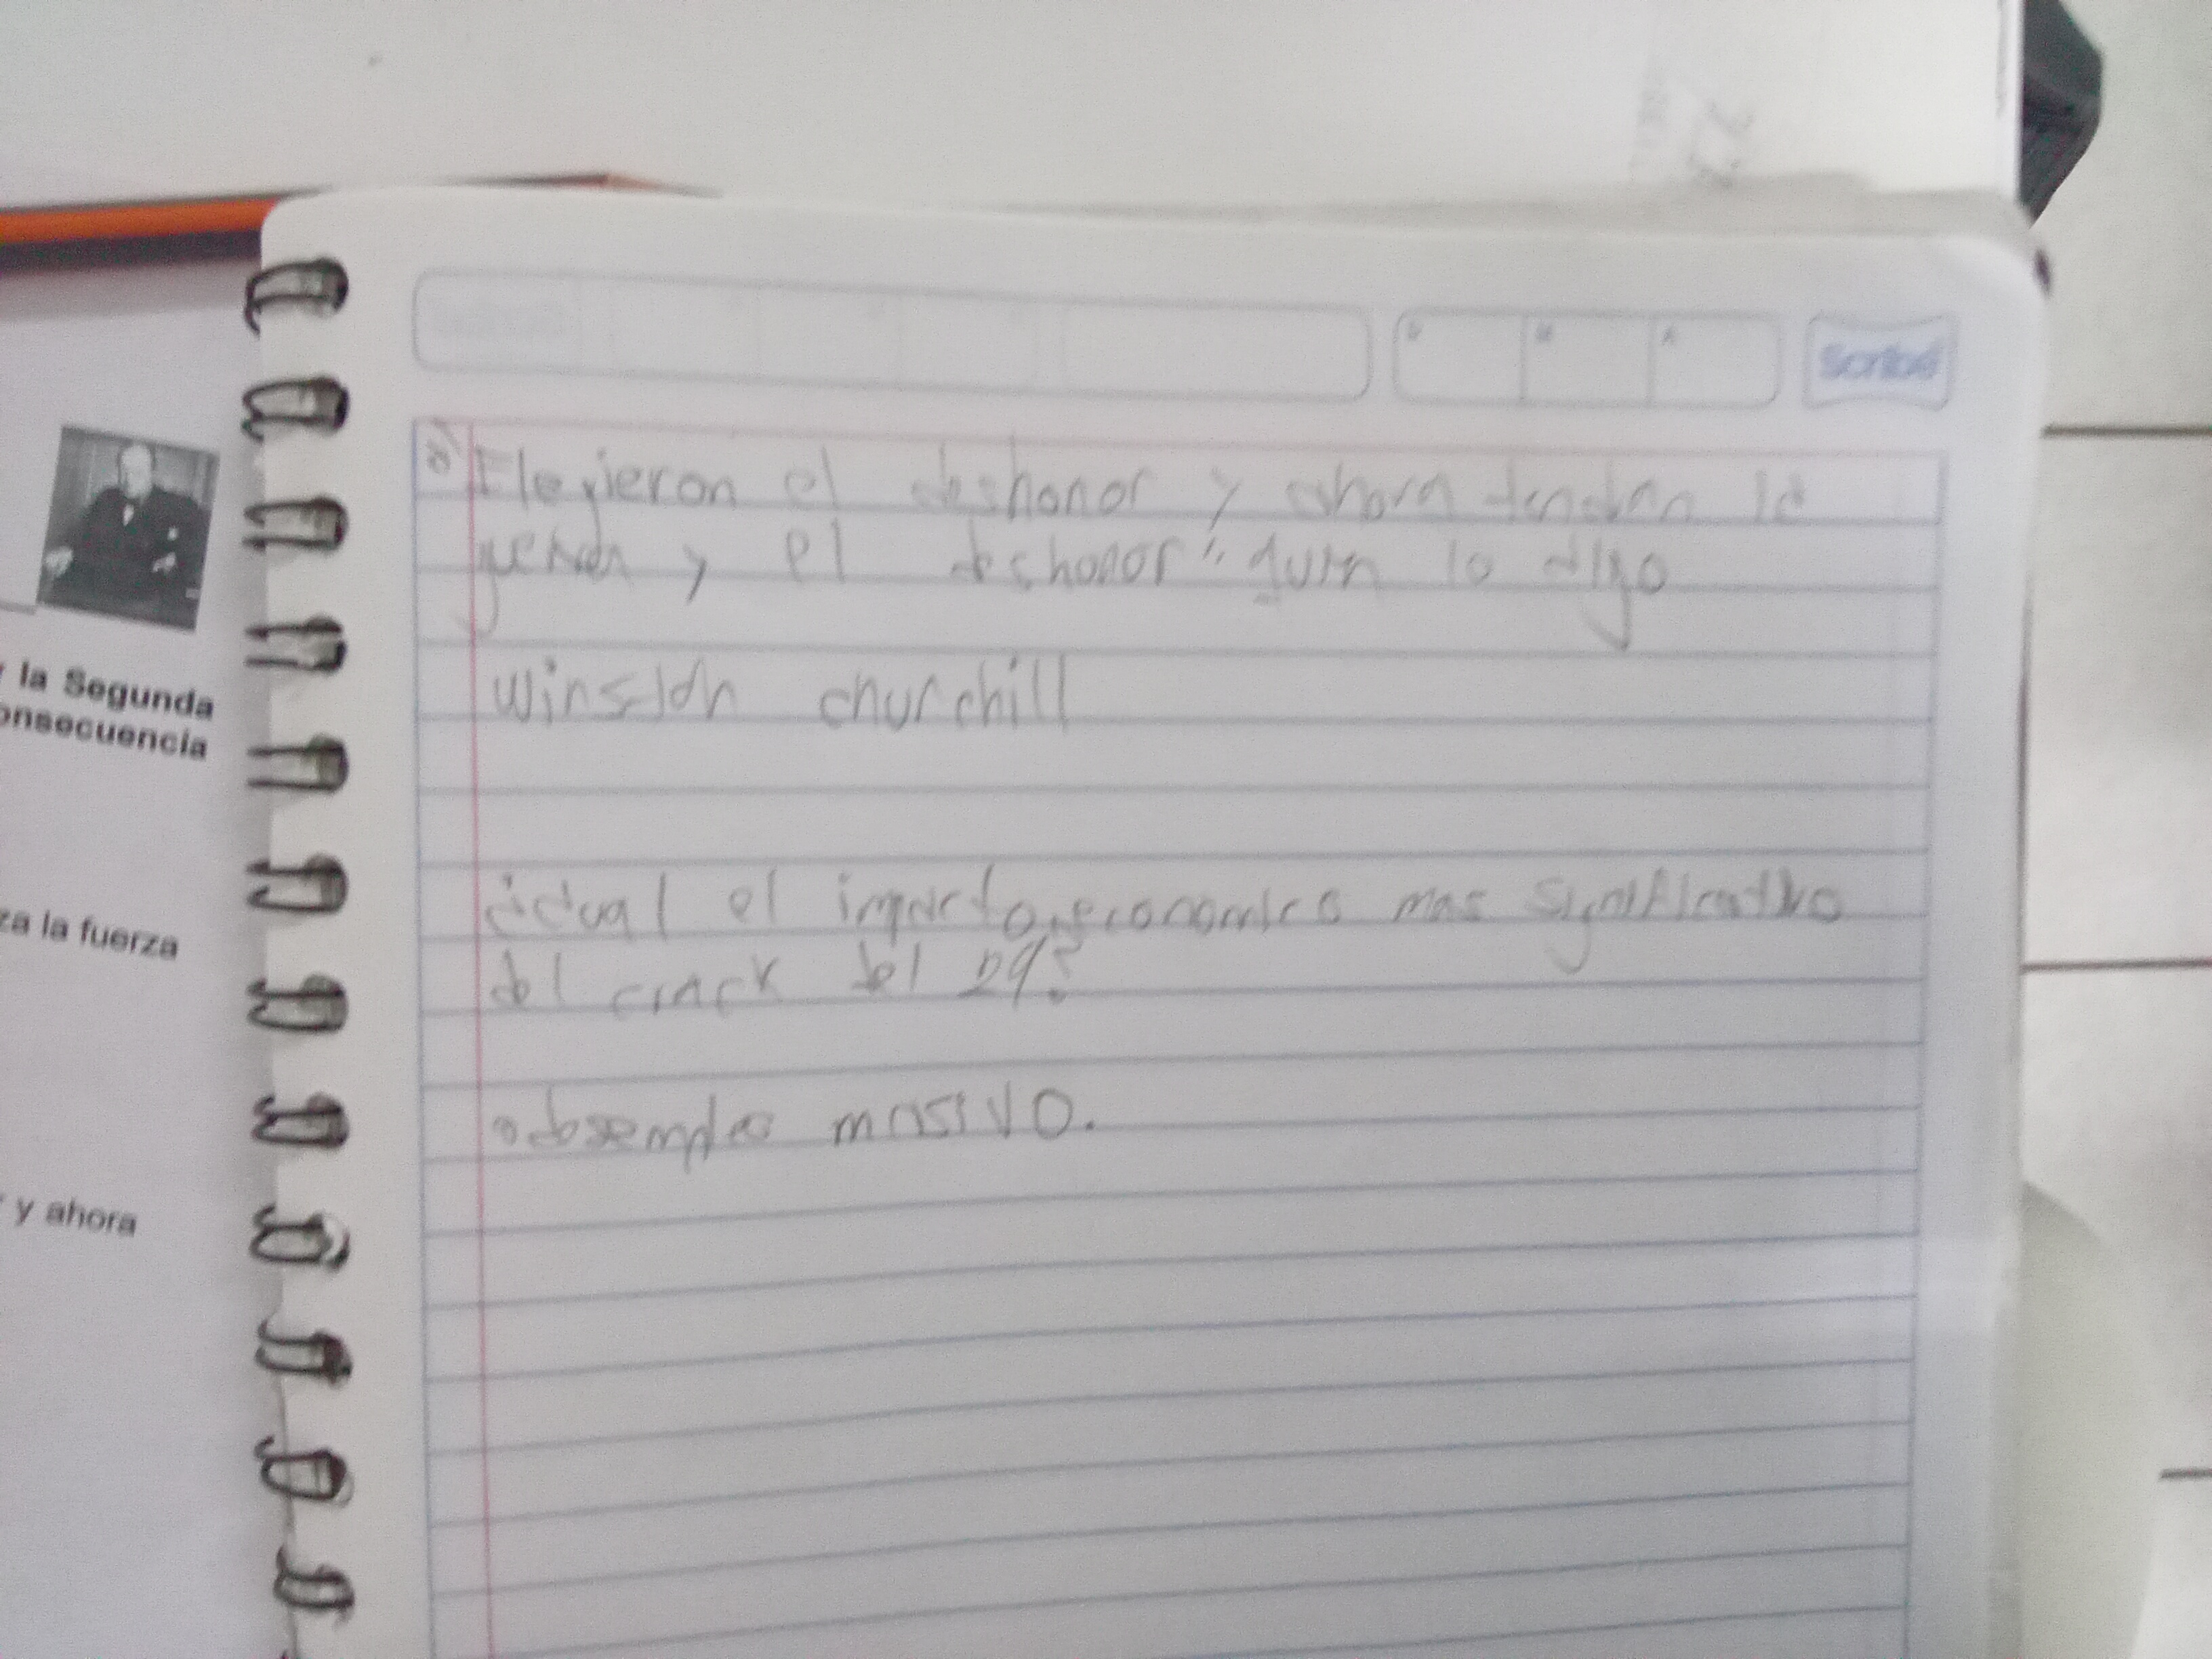 Scribe
8) Elegieron el deshonor y ahora tendran la
guerra y el deshonor" quien lo digo
Winston churchill
¿cual el impacto economico mas significativo
del crack del 29?
desempleo masivo.
r la Segunda
onsecuencia
za la fuerza
r y ahora